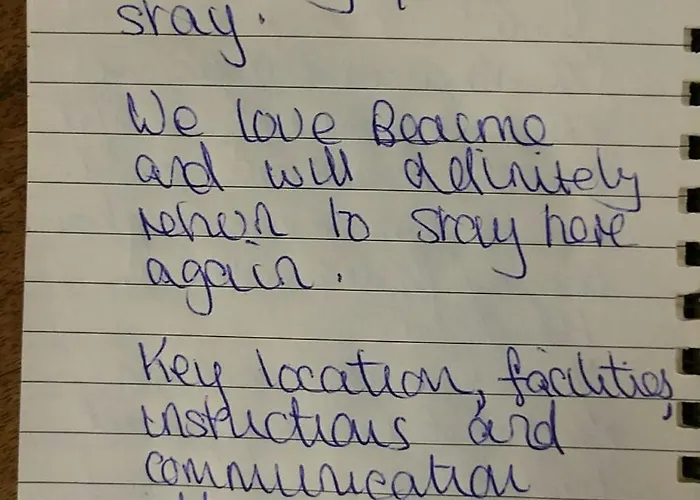 stay.
We love Beadmo
and will definitely
return to stay here
again.
Key location, facilities,
instructions and
communication